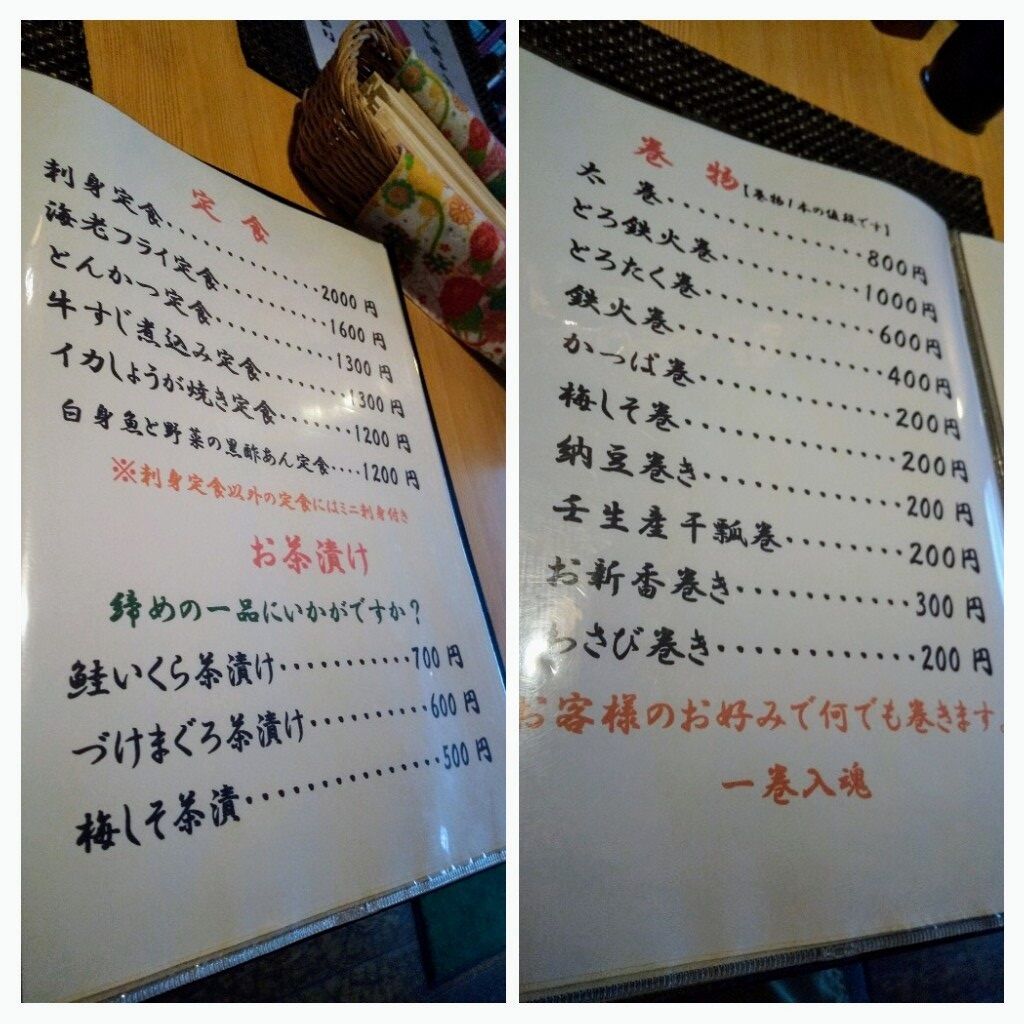 定食
刺身定食..............2000円
海老フライ定食..........1600円
とんかつ定食...........1300円
牛すじ煮込み定食........1300円
イカしょうが焼き定食.......1200円
白身魚と野菜の黒酢あん定食....1200円
※刺身定食以外の定食にはミニ刺身付き
お茶漬け
締めの一品にいかがですか？
鮭いくら茶漬け...........700円
づけまぐろ茶漬け..........600円
梅しそ茶漬..............500円
巻物【巻物1本の値段です】
太巻..............800円
とろ鉄火巻...........1000円
とろたく巻............600円
鉄火巻..............400円
かっぱ巻.............200円
梅しそ巻.............200円
納豆巻き.............200円
壬生産干瓢巻..........200円
お新香巻き............300円
わさび巻き............200円
お客様のお好みで何でも巻きます。
一巻入魂